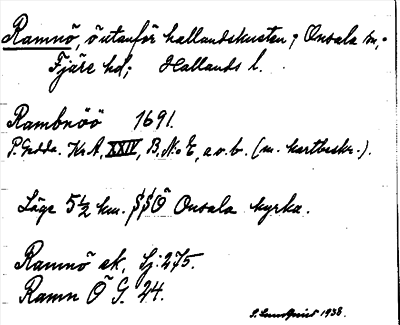 Ramnö, ö utanför hallandskusten; Onsala sn,
Fjäre hd; Hallands l.
Rambnöö 1691.
P. Gedda. Kr. A, XXIV, B, No E, a.o.b. (m. kartbeskr.).
Läge 5½ km. SSÖ Onsala kyrka.
Ramnö ek, Sj. 275.
Ramn Ö G. 24.
S. Lundquist 1938.